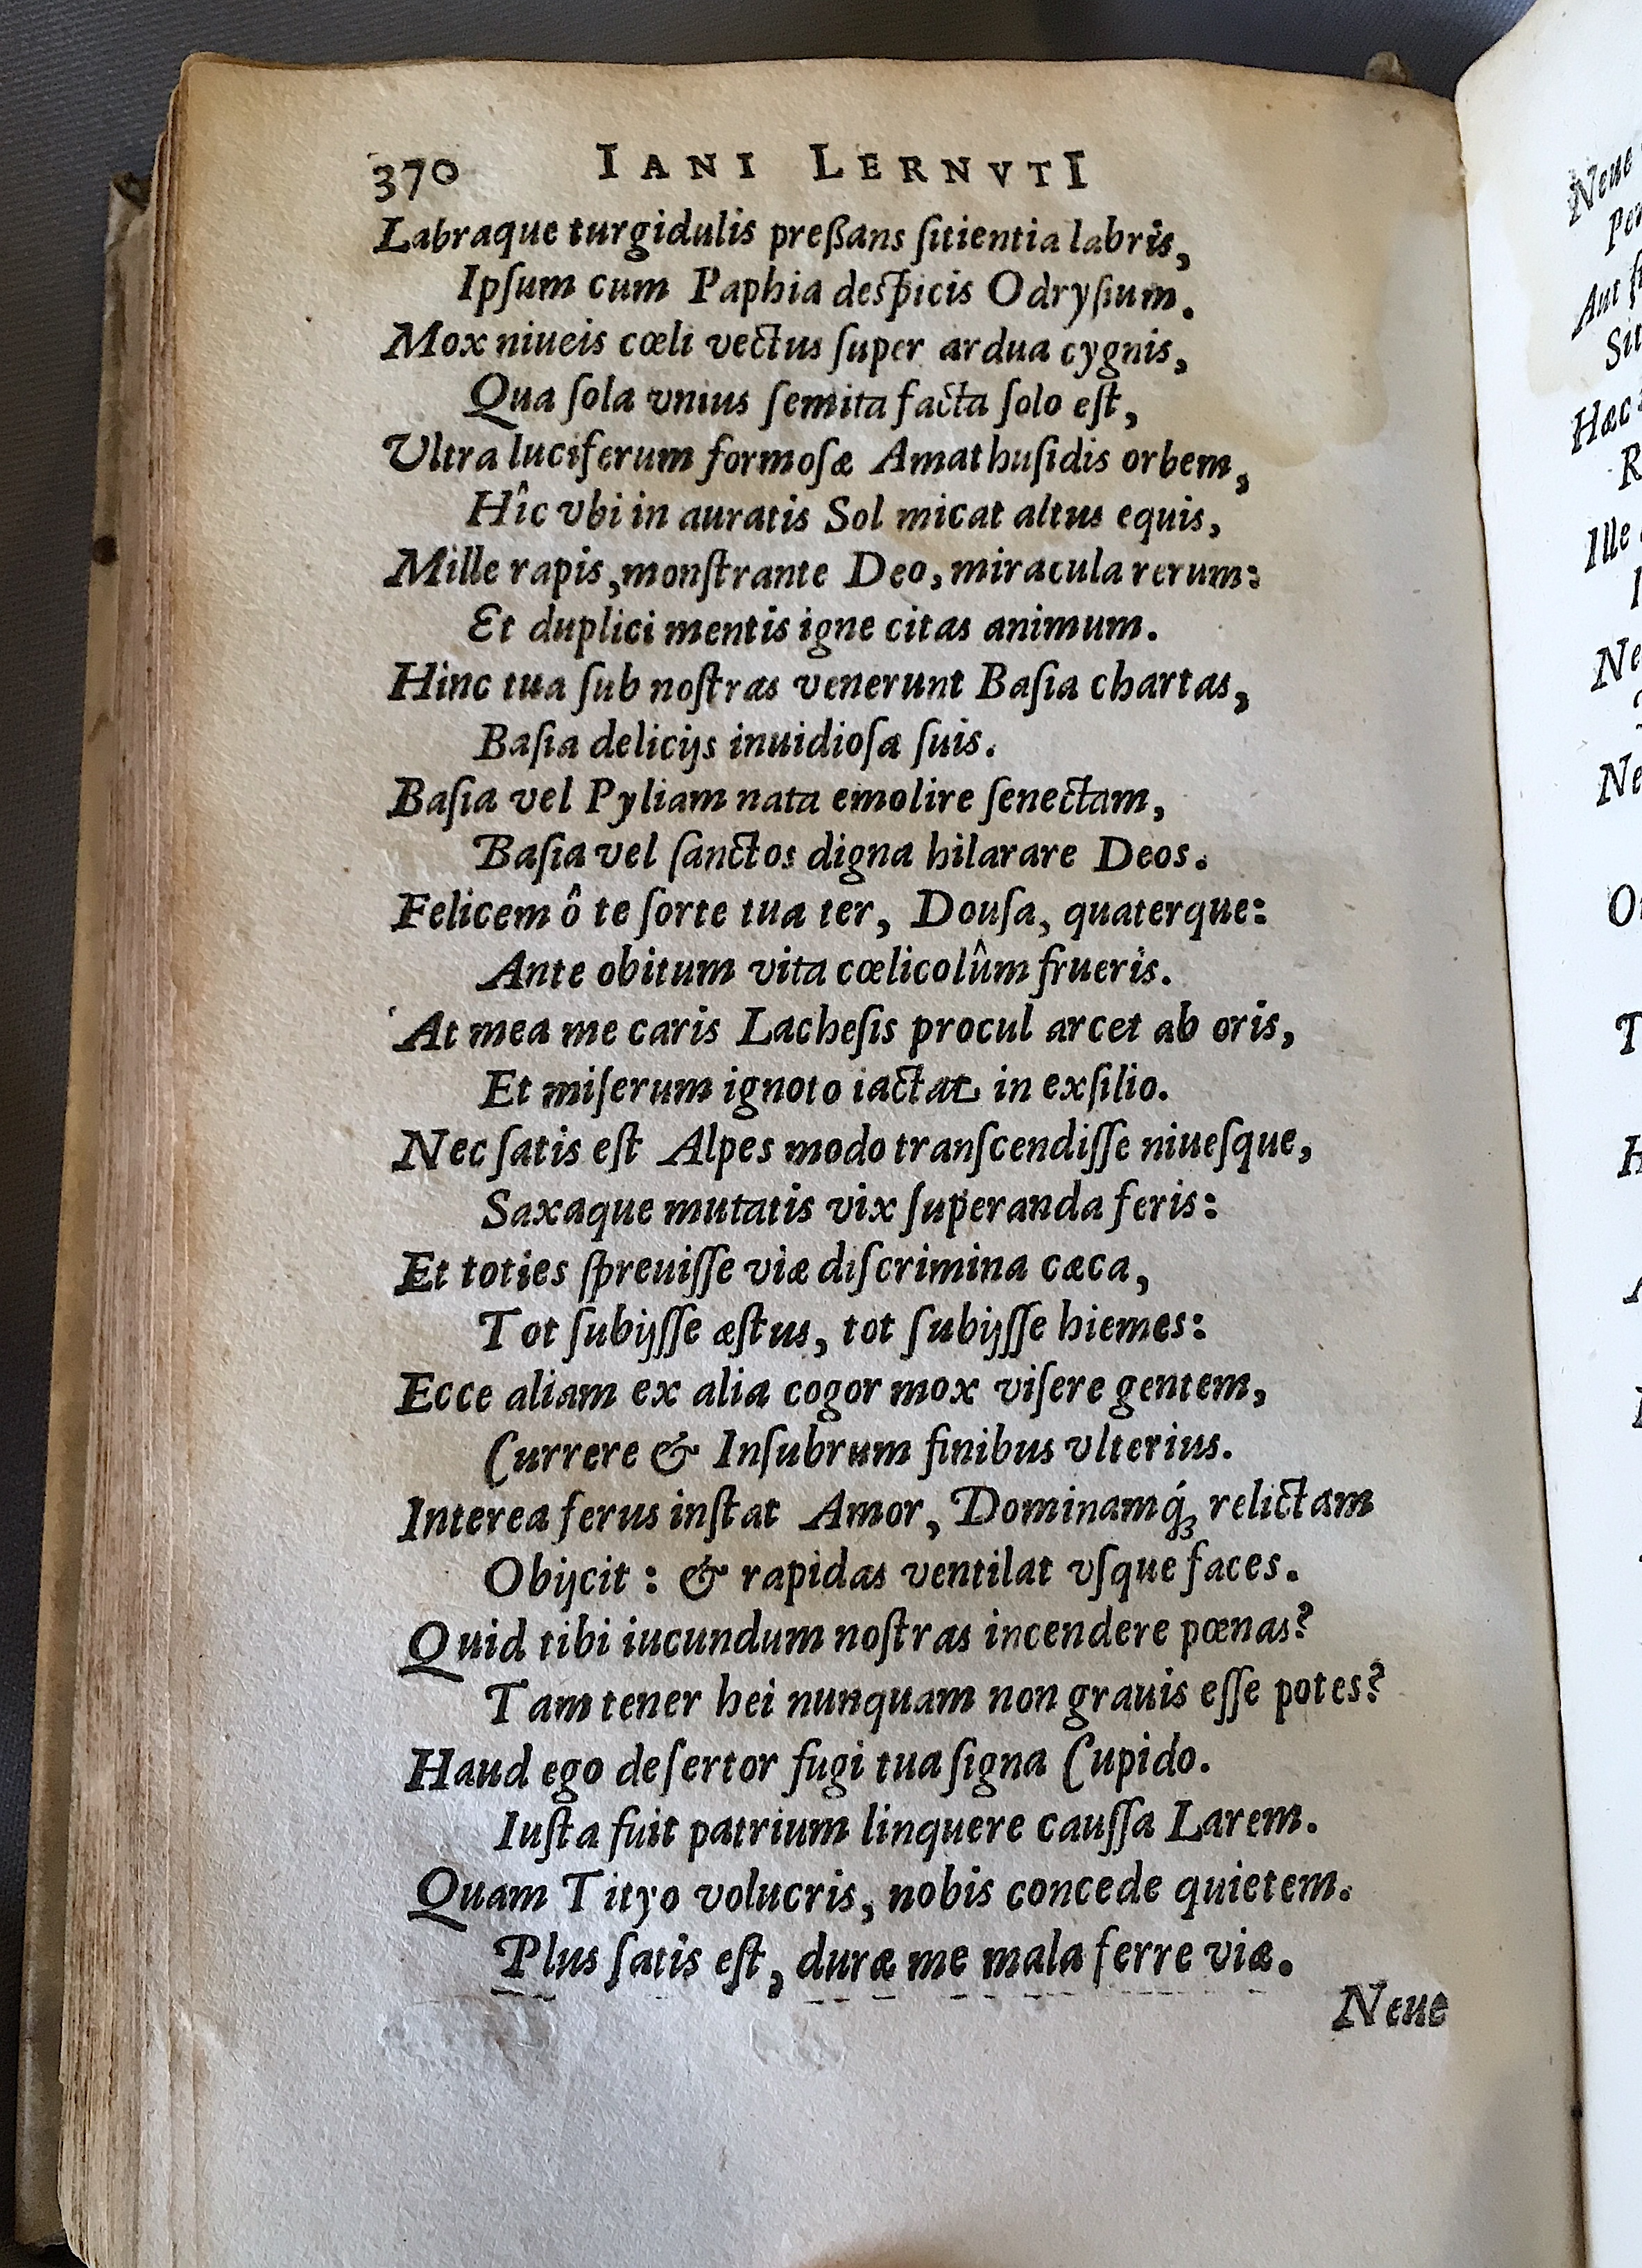 370 IANI LERNVTI
Labraque turgidulis preßans ſitientia labris,
Ipſum cum Paphia deſpicis Odryſium.
Mox niueis cœli vectus ſuper ardua cygnis,
Qua ſola vnius ſemita facta ſolo eſt,
Ultra luciferum formoſæ Amathuſidis orbem,
Hîc vbi in auratis Sol micat altus equis,
Mille rapis, monſtrante Deo, miracula rerum:
Et duplici mentis igne citas animum.
Hinc tua ſub noſtras venerunt Baſia chartas,
Baſia delicijs inuidioſa ſuis.
Baſia vel Pyliam nata emolire ſenectam,
Baſia vel ſanctos digna hilarare Deos.
Felicem ô te ſorte tua ter, Douſa, quaterque:
Ante obitum vita cœlicolûm frueris.
At mea me caris Lacheſis procul arcet ab oris,
Et miſerum ignoto iactat in exſilio.
Nec ſatis eſt Alpes modo tranſcendiſſe niueſque,
Saxaque mutatis vix ſuperanda feris:
Et toties ſpreuiſſe viæ diſcrimina cæca,
Tot ſubijſſe æſtus, tot ſubijſſe hiemes:
Ecce aliam ex alia cogor mox viſere gentem,
Currere & Inſubrum finibus vlterius.
Interea ferus inſtat Amor, Dominamq́ꝫ relictam
Obijcit : & rapidas ventilat vſque faces.
Quid tibi iucundum noſtras incendere pœnas?
Tam tener hei nunquam non grauis eſſe potes?
Haud ego deſertor fugi tua ſigna Cupido.
Iuſta fuit patrium linquere cauſſa Larem.
Quam Tityo volucris, nobis concede quietem.
Plus ſatis eſt, duræ me mala ferre viæ.
Neue
Neue
Aut
Sit
Hæc
Ille